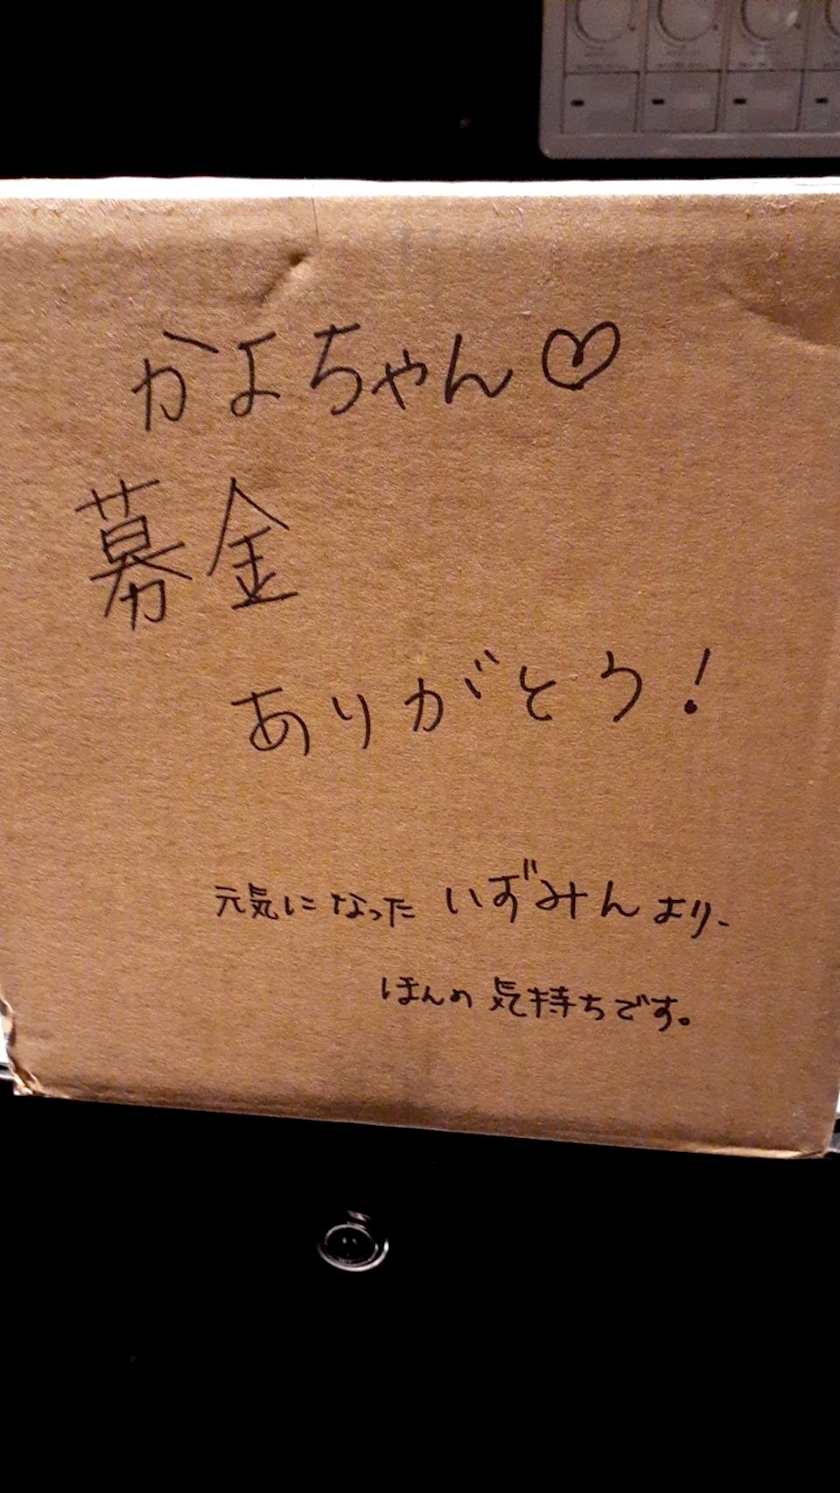 かよちゃん♡
募金
ありがとう!
元気になった いずみんより
ほんの気持ちです。